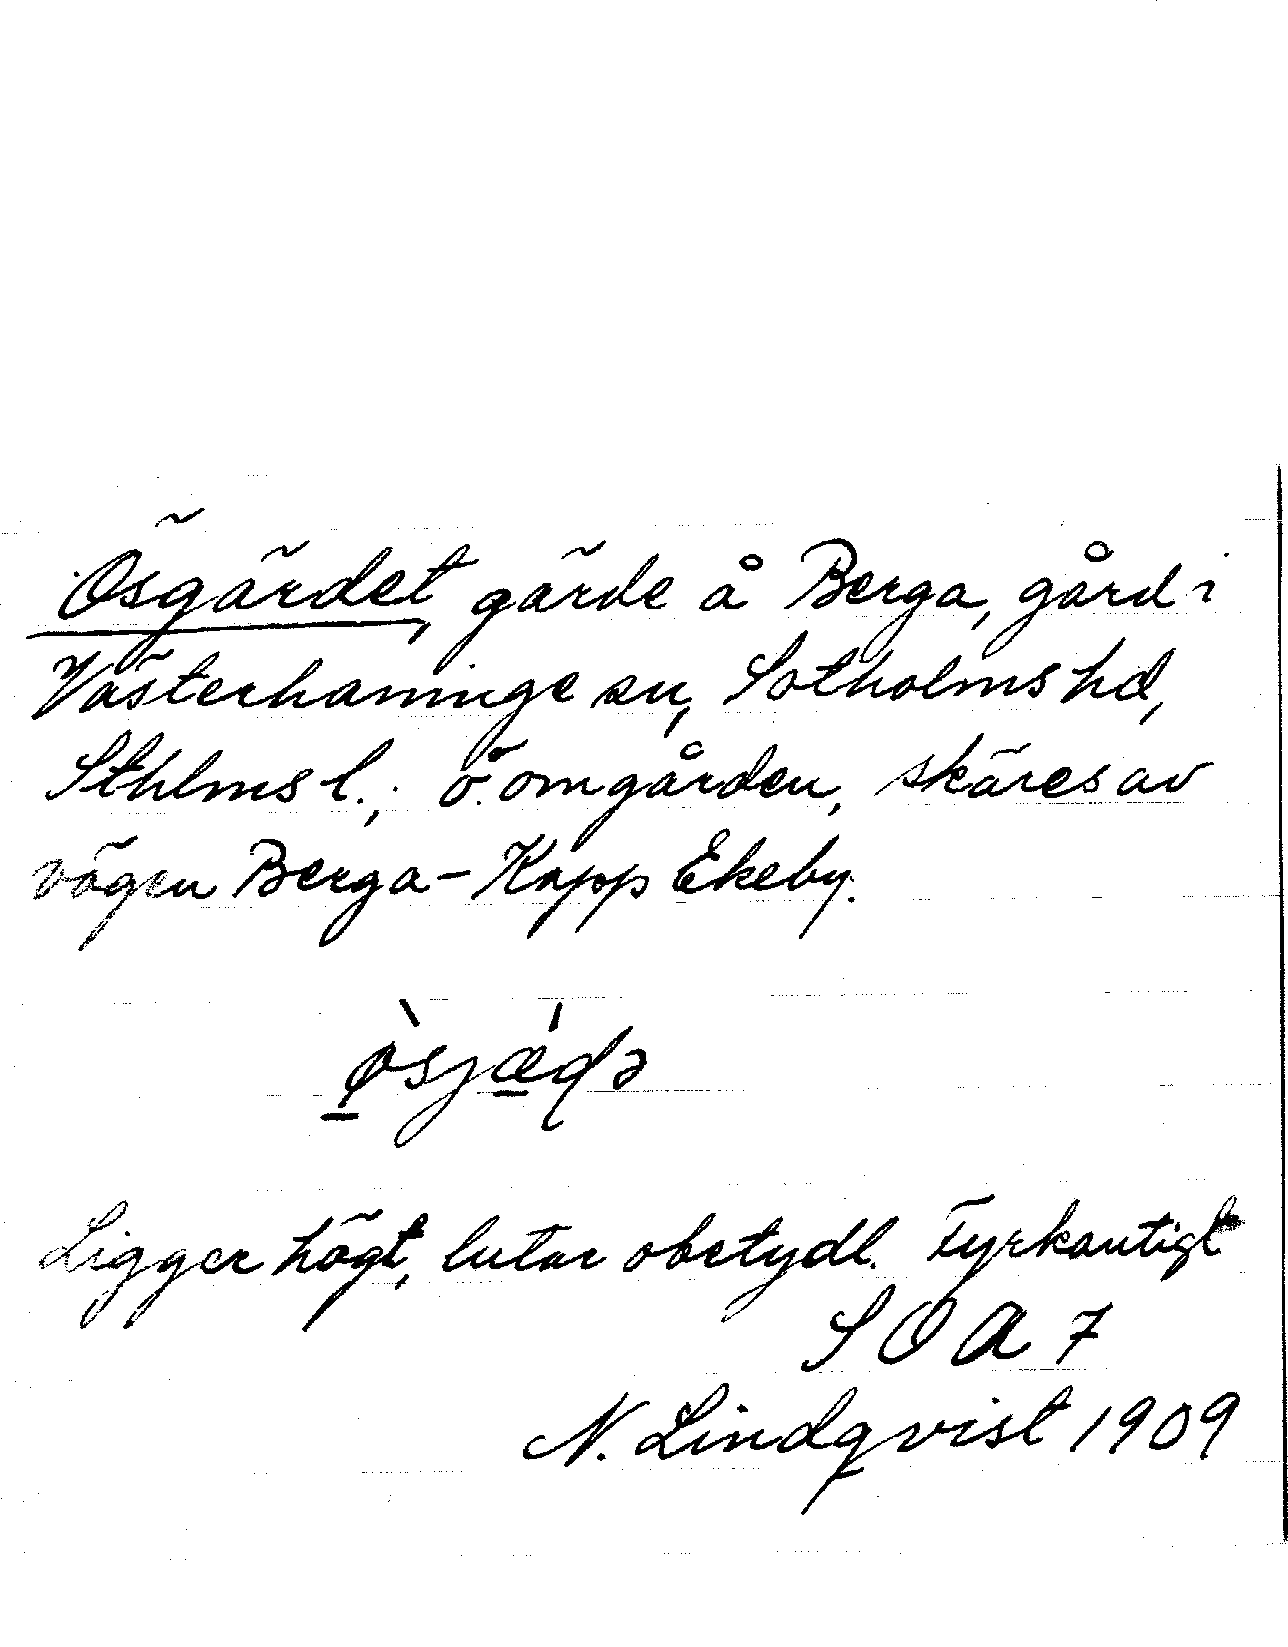 Ösgärdet, gärde å Berga, gård i
Västerhaninge sn, Sotholms hd,
Sthlms l.; ö. om gården, skäres av
vägen Berga - Kapp Ekeby.
ø̀sjǽḍə
Ligger högt, lutar obetydl. Fyrkantigt
SOA 7
N. Lindqvist 1909